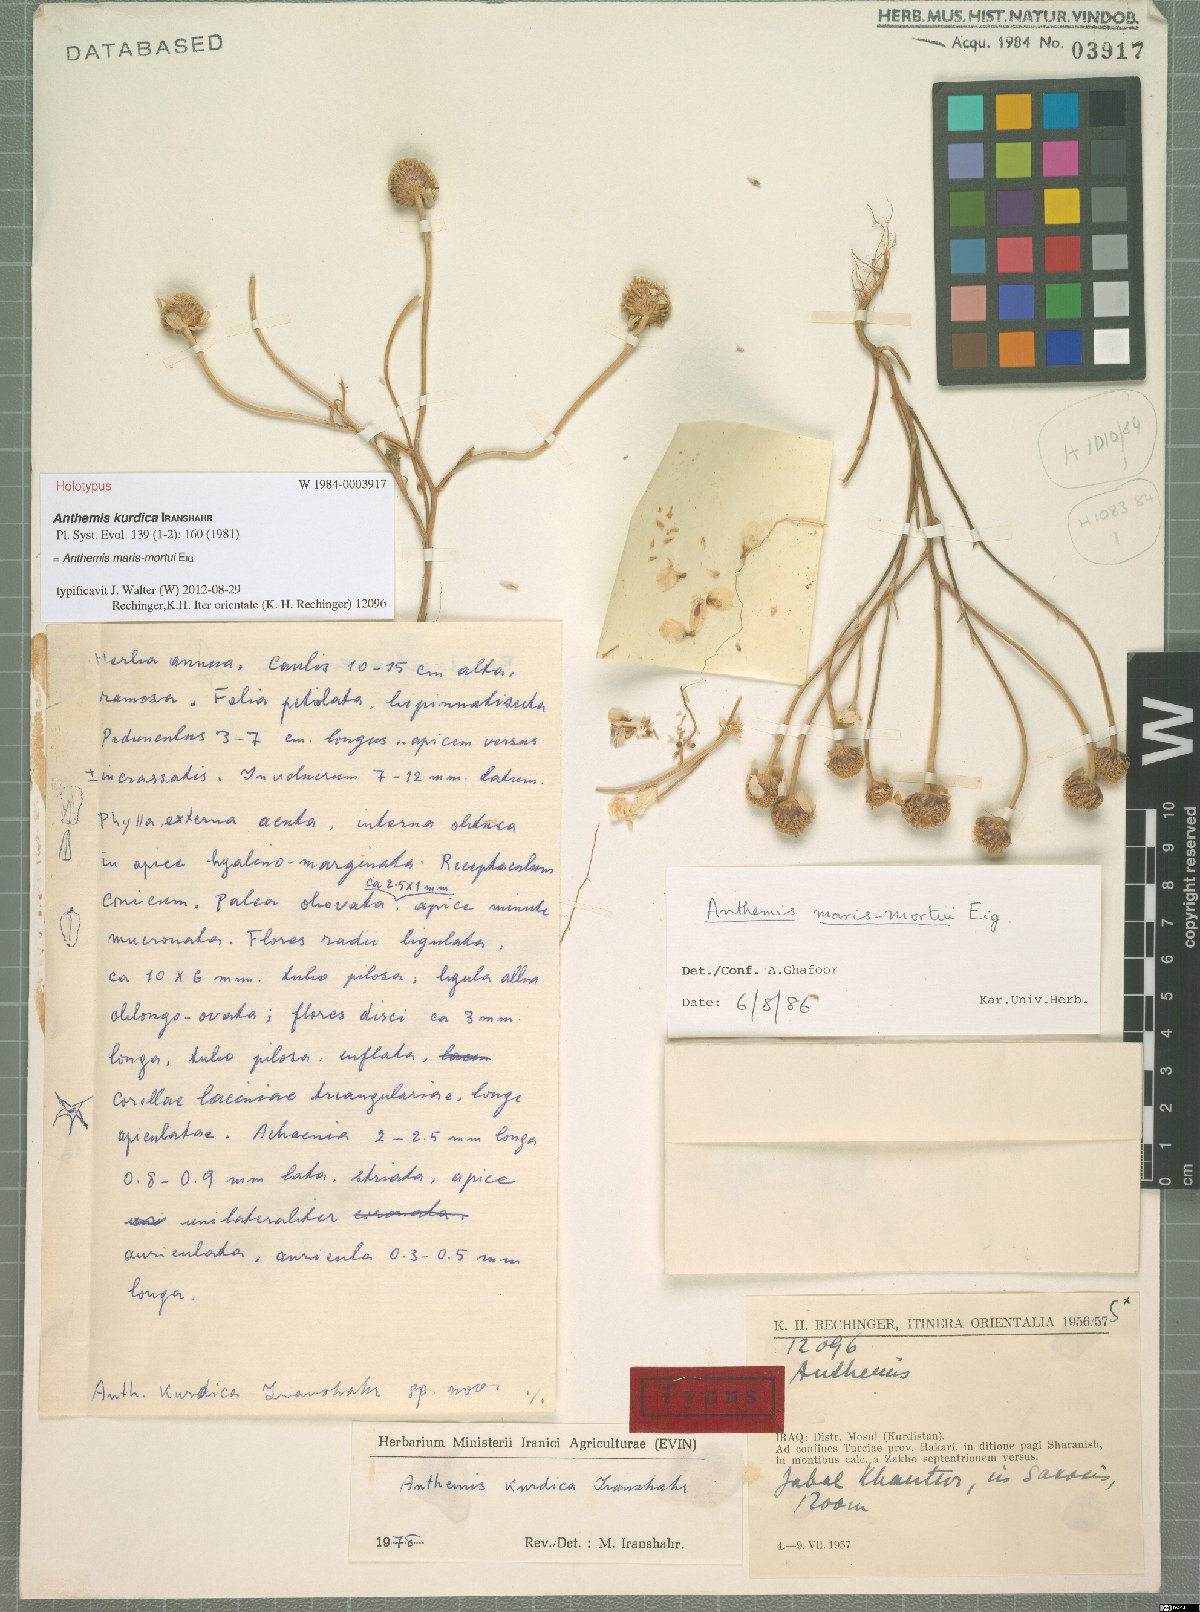 HERB. MUS. HIST. NATUR. VINDOB.
Acqu. 1984 No. 03917
DATABASED
H 1010/84
1
H 1083 84
1
Holotypus W 1984-0003917
Anthemis kurdica IRANSHAHR
Pl. Syst. Evol. 139 (1-2): 160 (1981)
= Anthemis maris-mortui EIG
typificavit J. Walter (W) 2012-08-29
Rechinger,K.H. Iter orientale (K. H. Rechinger) 12096
Herba annua. Caulis 10-15 cm alta,
ramosa. Folia petiolata, bipinnatisecta
Pedunculus 3-7 cm. longus, apicem versus
± incrassatis. Involucrum 7-12 mm. latum.
Phylla externa acuta, interna obtusa
in apice hyalino-marginata. Receptaculum
ca 2.5x1 mm
conicum. Palea obovata, apice minute
mucronata. Flores radii ligulata,
ca 10 x 6 mm. tubo pilosa; ligula alba
oblongo-ovata; flores disci ca 3 mm.
longa, tubo pilosa, inflata,
corollae laciniae triangulariae, longe
apiculatae. Achaenia 2-2.5 mm longa
0.8-0.9 mm lata, striata, apice
unilateraliter coronata.
auriculata, auricula 0.3-0.5 mm
longa.
Anth. kurdica Iranshahr sp. nova ./.
Anthemis maris-mortui Eig.
Det./Conf. A.Ghafoor
Date: 6/8/86 Kar.Univ.Herb.
W
10
9
8
7
6
5
4
3
2
1
0
cm
K. H. RECHINGER, ITINERA ORIENTALIA 1956/57 5*
12096
Anthemis
IRAQ: Distr. Mosul (Kurdistan).
Ad confines Turciae prov. Hakari, in ditione pagi Sharanish,
in montibus calc. a Zakho septentrionem versus.
Jabal Khantur, in saxosis,
1200m
4.—9. VII. 1957
Typus
Herbarium Ministerii Iranici Agriculturae (EVIN)
Anthemis kurdica Iranshahr
1978 Rev./Det. : M. Iranshahr.